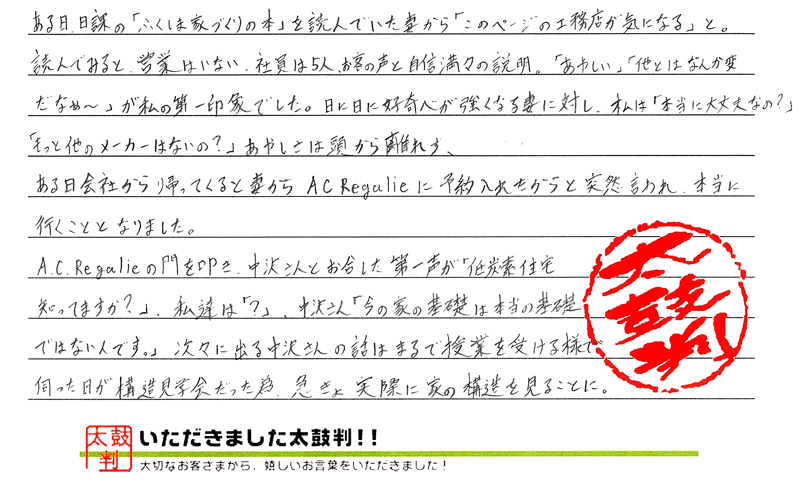 ある日、日課の「ふくしま家づくりの本」を読んでいた妻から「このページの工務店が気になる」と。
読んでみると、営業はいない、社員は5人、お客の声と自信満々の説明。「あやしい」「他とはなんか変
だなぁ〜」が私の第一印象でした。日に日に好奇心が強くなる妻に対し、私は「本当に大丈夫なの？」
「もっと他のメーカーはないの？」あやしさは頭から離れず、
ある日会社から帰ってくると妻から ACRegalieに予約入れたからと突然言われ、本当に
行くこととなりました。
A.C.Regalieの門を叩き、中沢さんとお合した第一声が「低炭素住宅
知ってますか？」、私達は「？」、中沢さん「今の家の基礎は本当の基礎
ではないんです。」次々に出る中沢さんの話はまるで授業を受ける様で
伺った日が構造見学会だった為、急きょ実際に家の構造を見ることに。
太鼓判
太鼓判
いただきました太鼓判!!
大切なお客さまから、嬉しいお言葉をいただきました！